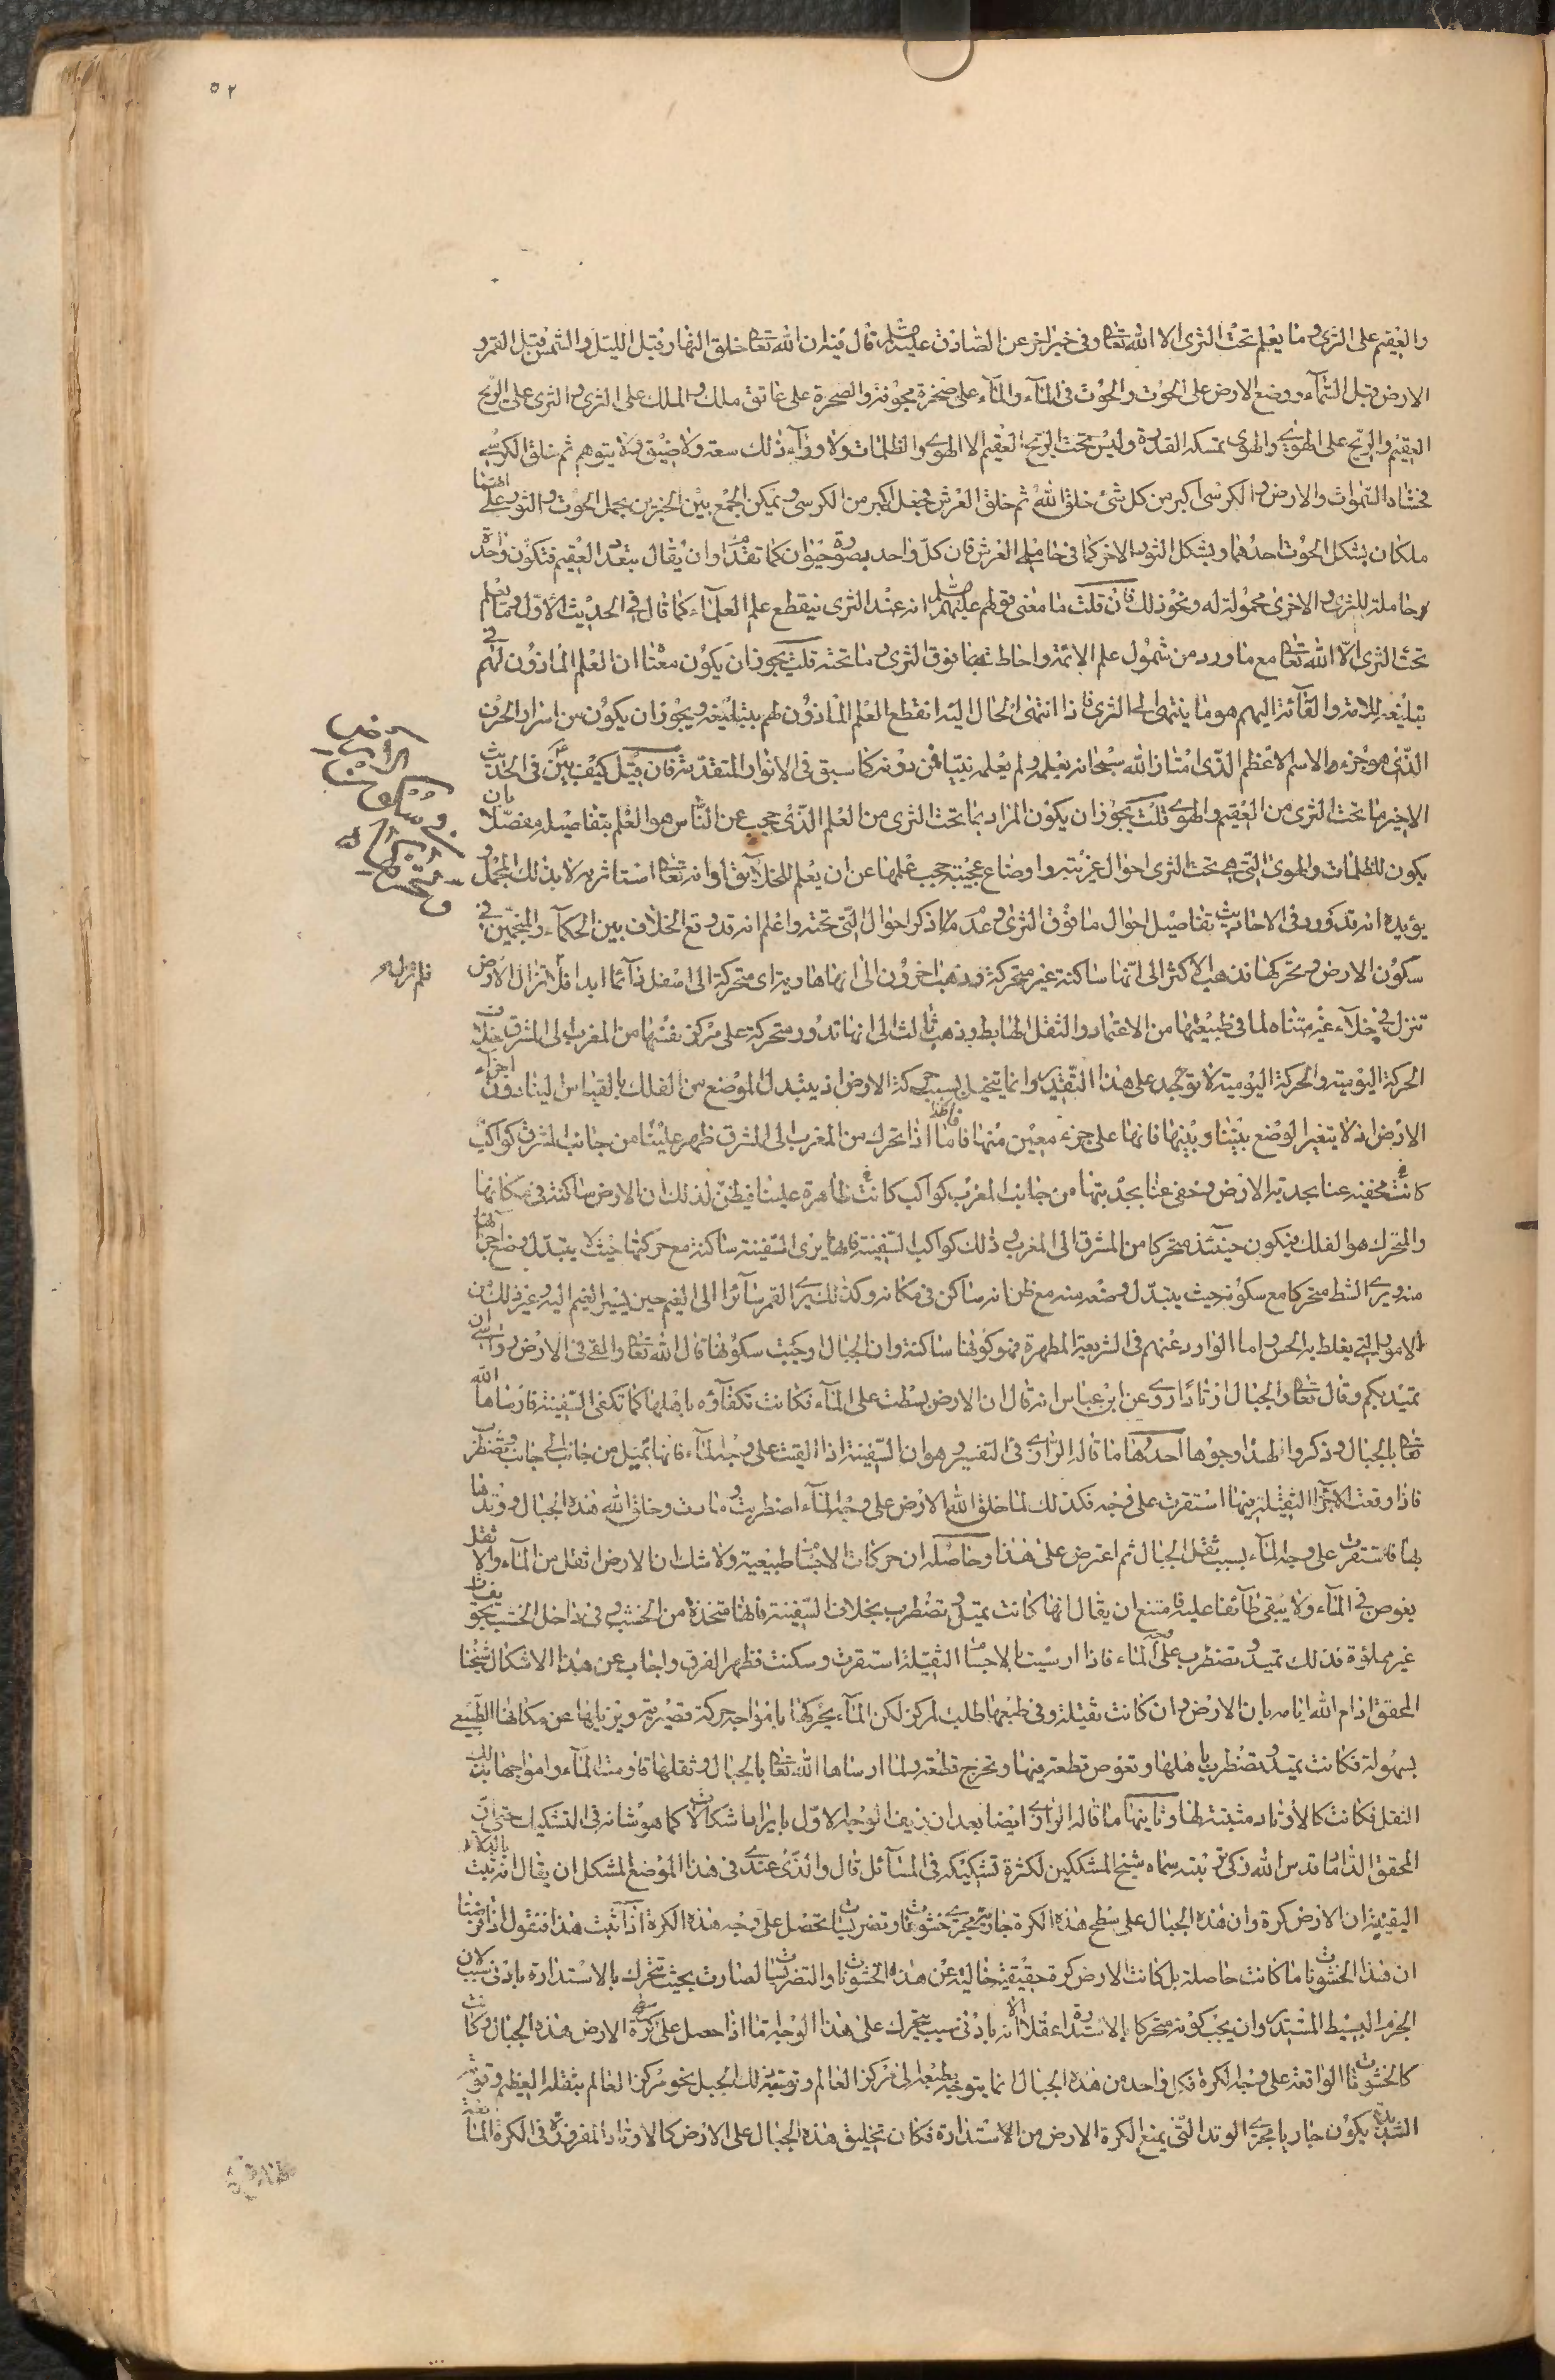 ٥٢
والعقيم على الثرى وما يعلم تحت الثرى الا الله تعا وفى خبر اخر عن الصادق عليه قال فيه ان الله تعا خلق النهار قبل الليل والشمس قبل القمر و
الارض قبل السماء ووضع الارض على الحوت والحوت فى الماء والماء على صخرة مجوفة والصخرة على عاتق ملك والملك على الثرى والثرى على الريح
العقيم والريح على الهوى والهوى تمسكه القدرة وليس تحت الريح العقيم الا الهوى والظلمات ولا وراء ذلك سعة ولا ضيق ولا يتوهم ثم خلق الكرسى
فحشاه السموات والارض والكرسى اكبر من كل شئ خلق الله ثم خلق العرش فجعله اكبر من الكرسى ويمكن الجمع بين الخبرين بحمل الحوت والثور على انهما
ملكان بشكل الحوت احدهما وبشكل الثور الاخر كما فى حاملى العرش فان كل واحد بصورة حيوان كما تقدم او ان يقال بتعدد العقيم فتكون واحدة
حاملة للثرى والاخرى محمولة له ونحو ذلك فان قلت ما معنى قولهم عليهم انه عند الثرى ينقطع علم العلماء كما قال فى الحديث الاول وما يعلم
تحت الثرى الا الله تعا مع ما ورد من شمول علم الائمة واحاطته بما فوق الثرى وما تحته قلت يجوز ان يكون معناه ان العلم الماذون لهم فى
تبليغه للامة والقائه اليهم هو ما ينتهى الى الثرى فاذا انتهى الحال اليه انقطع العلم الماذون لهم بتبليغه ويجوز ان يكون من اسرار الحرف
الذى هو جزء الاسم الاعظم الذى امتاز الله سبحانه بعلمه ولم يعلمه نبيا فمن دونه كما سبق فى الانوار المتقدمة فان قيل كيف بين فى الحديث
الاخير ما تحت الثرى من العقيم والهوى قلت يجوز ان يكون المراد بما تحت الثرى من العلم الذى حجب عن الناس هو العلم بتفاصيله مفصلا بان
يكون للظلمات والهوى التى هى تحت الثرى احوال غريبة واوضاع عجيبة حجب علمها عن ان يعلم للخلايق او انه تعا استاثر به لا بذلك المجمل و
يؤيده انه قد ورد فى الاحاديث تفاصيل احوال ما فوق الثرى وعدم ذكر احوال التى تحته واعلم انه قد وقع الخلاف بين الحكماء والمنجمين فى
سكون الارض وتحركها فذهب الاكثر الى انها ساكنة غير متحركة وذهب اخرون الى انها هاوية اى متحركة الى اسفل دائما ابدا فلا تزال الارض
تنزل فى خلاء غير متناه لما فى طبيعتها من الاعتماد والثقل الهابط وذهب ثالث الى انها تدور متحركة على مركز نفسها من المغرب الى المشرق خلاف
الحركة اليومية والحركة اليومية لا توجد على هذا التقدير وانما يتخيل بسبب حركة الارض اذ يتبدل الموضع من الفلك بالقياس لينا دون اجزاء
الارض اذ لا يتغير الوضع بيننا وبينها فانها على جزء معين منها فاما اذا تحرك من المغرب الى المشرق ظهر علينا من جانب المشرق كواكب
كانت مخفية عنا بحدبة الارض وخفى عنا بحدبتها من جانب المغرب كواكب كانت ظاهرة علينا فيظن لذلك ان الارض ساكنة فى مكانها
والمتحرك هو الفلك فيكون حينئذ متحركا من المشرق الى المغرب وذلك كراكب السفينة فانه يرى السفينة ساكنة مع حركتها حيث لا يتبدل وضع اجزائها
منه ويرى الشط متحركا مع سكونه حيث يتبدل وضعه منه مع ظن انه ساكن فى مكانه وكذلك يرى القمر سائرا الى الغيم حين يسير الغيم اليه وغير ذلك من
الامور التى يغلط بها الحس واما الوارد عنهم فى الشريعة المطهرة فهو كونها ساكنة وان الجبال اوجبت سكونها قال الله تعا والقى فى الارض رواسى ان
تميد بكم وقال تعا والجبال اوتادا روى عن ابن عباس انه قال ان الارض بسطت على الماء فكانت تكفاؤه باهلها كما تكفى السفينة فارساها الله
تعا بالجبال وذكروا لهذا وجوها احدها ما قاله الرازى فى التفسير وهو ان السفينة اذا القيت على وجه الماء فانها تميل من جانب الى جانب وتضطرب
فاذا وقعت الاجرام الثقيلة فيها استقرت على وجه فكذلك لما خلق الله الارض على وجه الماء اضطربت ومادت وخلق الله هذه الجبال ووتدها
بها فاستقرت على وجه الماء بسبب ثقل الجبال ثم اعترض على هذا وحاصله ان حركات الاجسام طبيعية ولا شك ان الارض اثقل من الماء والاثقل
يغوص فى الماء ولا يبقى طائفا عليه فامتنع ان يقال انها كانت تميد وتضطرب بخلاف السفينة فانها متخذة من الخشب وفى داخل الخشب تجويفات
غير مملؤة فذلك تميد وتضطرب على وجه الماء فاذا ارسيت بالاجسام الثقيلة استقرت وسكنت فظهر الفرق واجاب عن هذا الاشكال شيخنا
المحقق ادام الله ايامه بان الارض وان كانت ثقيلة وفى طبعها طلب المركز لكن الماء يحركها بامواجه حركة قسرية ويزيلها عن مكانها الطبيعى
بسهولة فكانت تميد وتضطرب باهلها وتغوص قطعة منها وتخرج قطعة ولما ارساها الله تعا بالجبال وثقلها قاومت الماء وامواجها بذلك
الثقل فكانت كالاوتاد مثبتة لها وثانيها ما قاله الرازى ايضا بعد ان زيف الوجه الاول بايراد اشكالات كما هو شانه فى التشكيك حتى ان
المحقق الداماد قدس الله زكى تربته سماه شيخ المشككين لكثرة تشكيكه فى المسائل قال والذى عندى فى هذا الموضع المشكل ان يقال انه ثبت بالدلائل
اليقينية ان الارض كرة وان هذه الجبال على سطح هذه الكرة جارية مجرى خشونات وتضريسات تحصل على وجه هذه الكرة اذا ثبت هذا فنقول اذا فرضنا
ان هذا الخشونات ما كانت حاصلة بل كانت الارض كرة حقيقية خالية عن هذه الخشونات والتضريسات لصارت بحيث تتحرك بالاستدارة بادنى سبب لان
الجرم البسيط المستدير وان يجب كونه متحركا بالاستدارة عقلا الا انه بادنى سبب يتحرك على هذا الوجه اما اذا حصل على كرة الارض هذه الجبال وكانت
كالخشونات الواقعة على وجه الكرة فكل واحد من هذه الجبال انما يتوجه بطبعه الى مركز العالم وتوجه ذلك الجبل نحو مركز العالم بثقله العظيم وقوته
الشديدة يكون جاريا مجرى الوتد التى يمنع الكرة الارض من الاستدارة فكان تخليق هذه الجبال على الارض كالاوتاد المغروزة فى الكرة المانعة